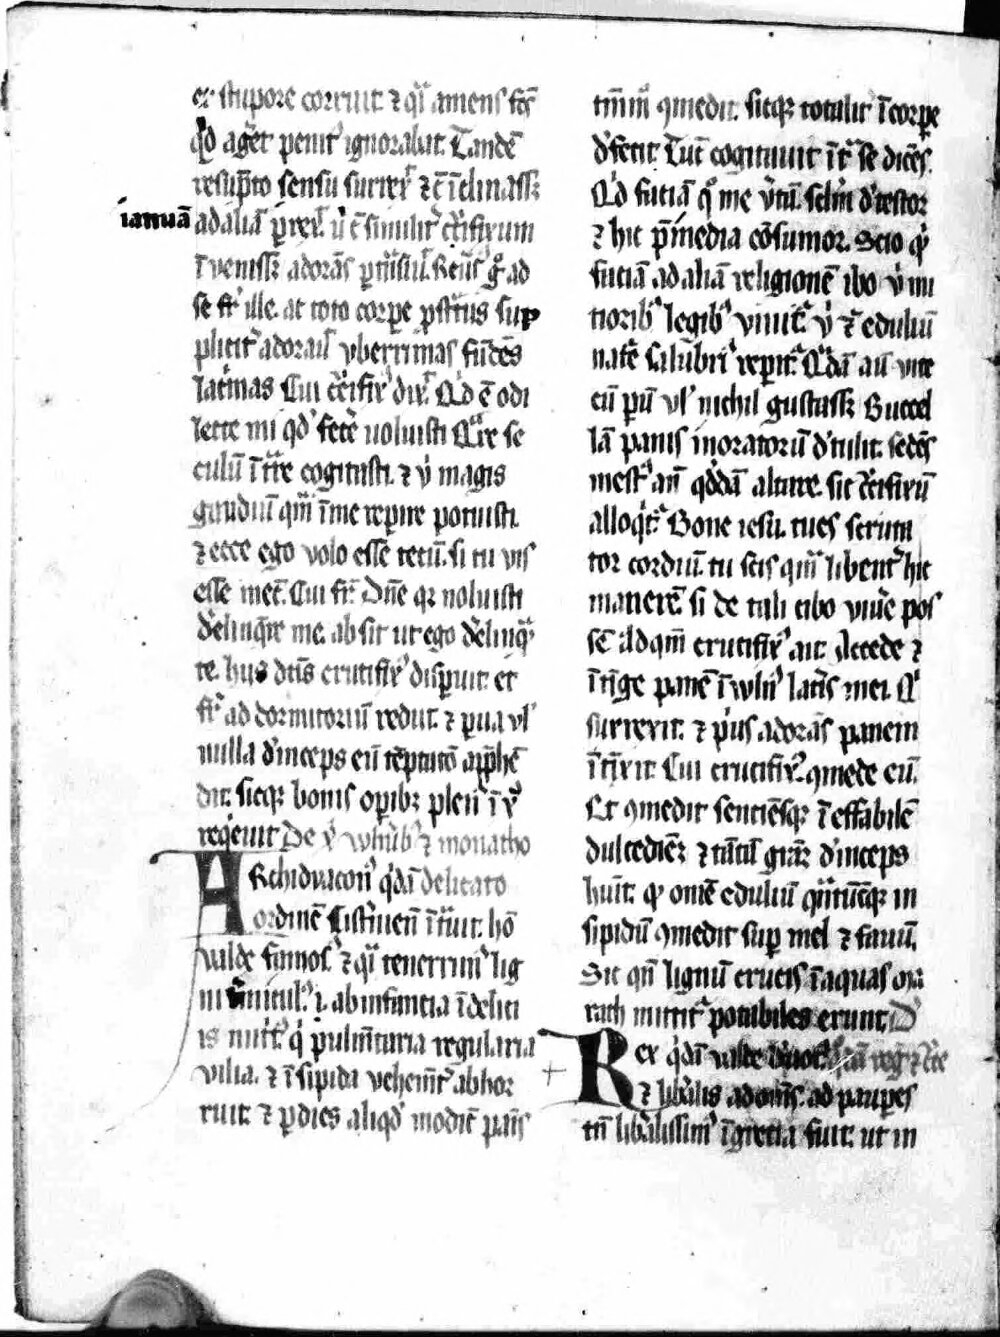 et stupore corruit ⁊ qͣi amens fcͣs
qͦd agēt penitꝰ ignorabat. Tandē
resūpto sensu surrexͭ ⁊ cū īclinassꝫ
ianuā ad aliā ꝑrexͭ. u̾ cū similit̾ cͨifixum
īvenissꝫ adorās
se frͣ ille. at toto corpe ꝓstͣtus sup
plicit̾ adorauͭ vberrimas fūdēs
lacͥmas Cui cͨifixꝰ dixͭ. Qͥd ē odi
lecte mi qd̾ fecͤe uoluisti Qͣre se
culū ītͣre cogitasti. ⁊ uͥ magis
gaudiū qͣm ī me repire potuisti.
⁊ ecce ego volo esse tecū. si tu vis
esse mecū. Cui frͣ. Dn̄e qͣr noluisti
d̾elinqͤre me. absit ut ego d̾elinqͣ
te. hijs dc̄is crucifixꝰ disparuit et
frͣ ad dormitoriū rediit. ⁊ pͥua vlͣ
nulla d̾inceps eū tēptatō apphē
dit. sicqꝫ bonis oꝑibꝫ plenꝰ ī xͦ
reqͥeuit De
ARchidyaconꝰ qͥdā delicato
ordinē Cistͤciēn̄ ītͣuit. hō
valde famosꝰ. ⁊ qͣi tenerrimꝰ lig
ni v̾miculꝰ .i. ab infantia ī delici
is nutͥtꝰ qͥ pulm̄taria regularia
vilia. ⁊ īsipida vehemt̾ abhor
ruit. ⁊ ꝑ dies aliqͦd modicū panis
tm̄m̄ ꝯmedit. sicqꝫ totalit̾ ī corpe
d̾fecit. Tūc cogitauit īt̾ se dicēs.
Qͥd faciā qͣ me
⁊ hic p̄ media cōsumor. Scio qͥ
faciā ad aliā religionē ibo uͥ mi
tioribꝰ legibꝰ viuitͬ. uͥ ⁊ eduliū
natͤe salubriꝰ repitͬ. Qͣdā aūt vice
cū paꝝ vlͣ nichil gustassꝫ Buccel
lā panis ī oratoriū d̾tulit. sedēs
mestꝰ an̄ qͦddā altare. sic cͨifixū
alloqͥtͬ. Bone iesu. tu es scruta
tor cordiū. tu scis qͣm libent̾ hic
manerē si de tali cibo viuͤe pos
sē. Ad qͣm crucifixꝰ ait. Accede ⁊
ītīge panē ī vulnꝰ latͤis mei. Qͥ
surrexit. ⁊ pͥus adorās panem
ītīxit. Cui crucifixꝰ. ꝯmede eū.
Et ꝯmedit sentiēsqꝫ ī effabilē
dulcediēꝫ ⁊ tātā grāꝫ d̾inceps
hūit. qͥ om̄e eduliū qͣntūcūqꝫ in
sipidū ꝯmedit sup mel ⁊ fauū.
Sic qn̄ lignū crucis ī aquas ma
rath mittitͬ potabiles erunt. D̾
Rex qͥdā valde
⁊ lib̾alis ad om̄s. ad pauꝑes
tn̄ lib̾alissimꝰ fuit. ut in